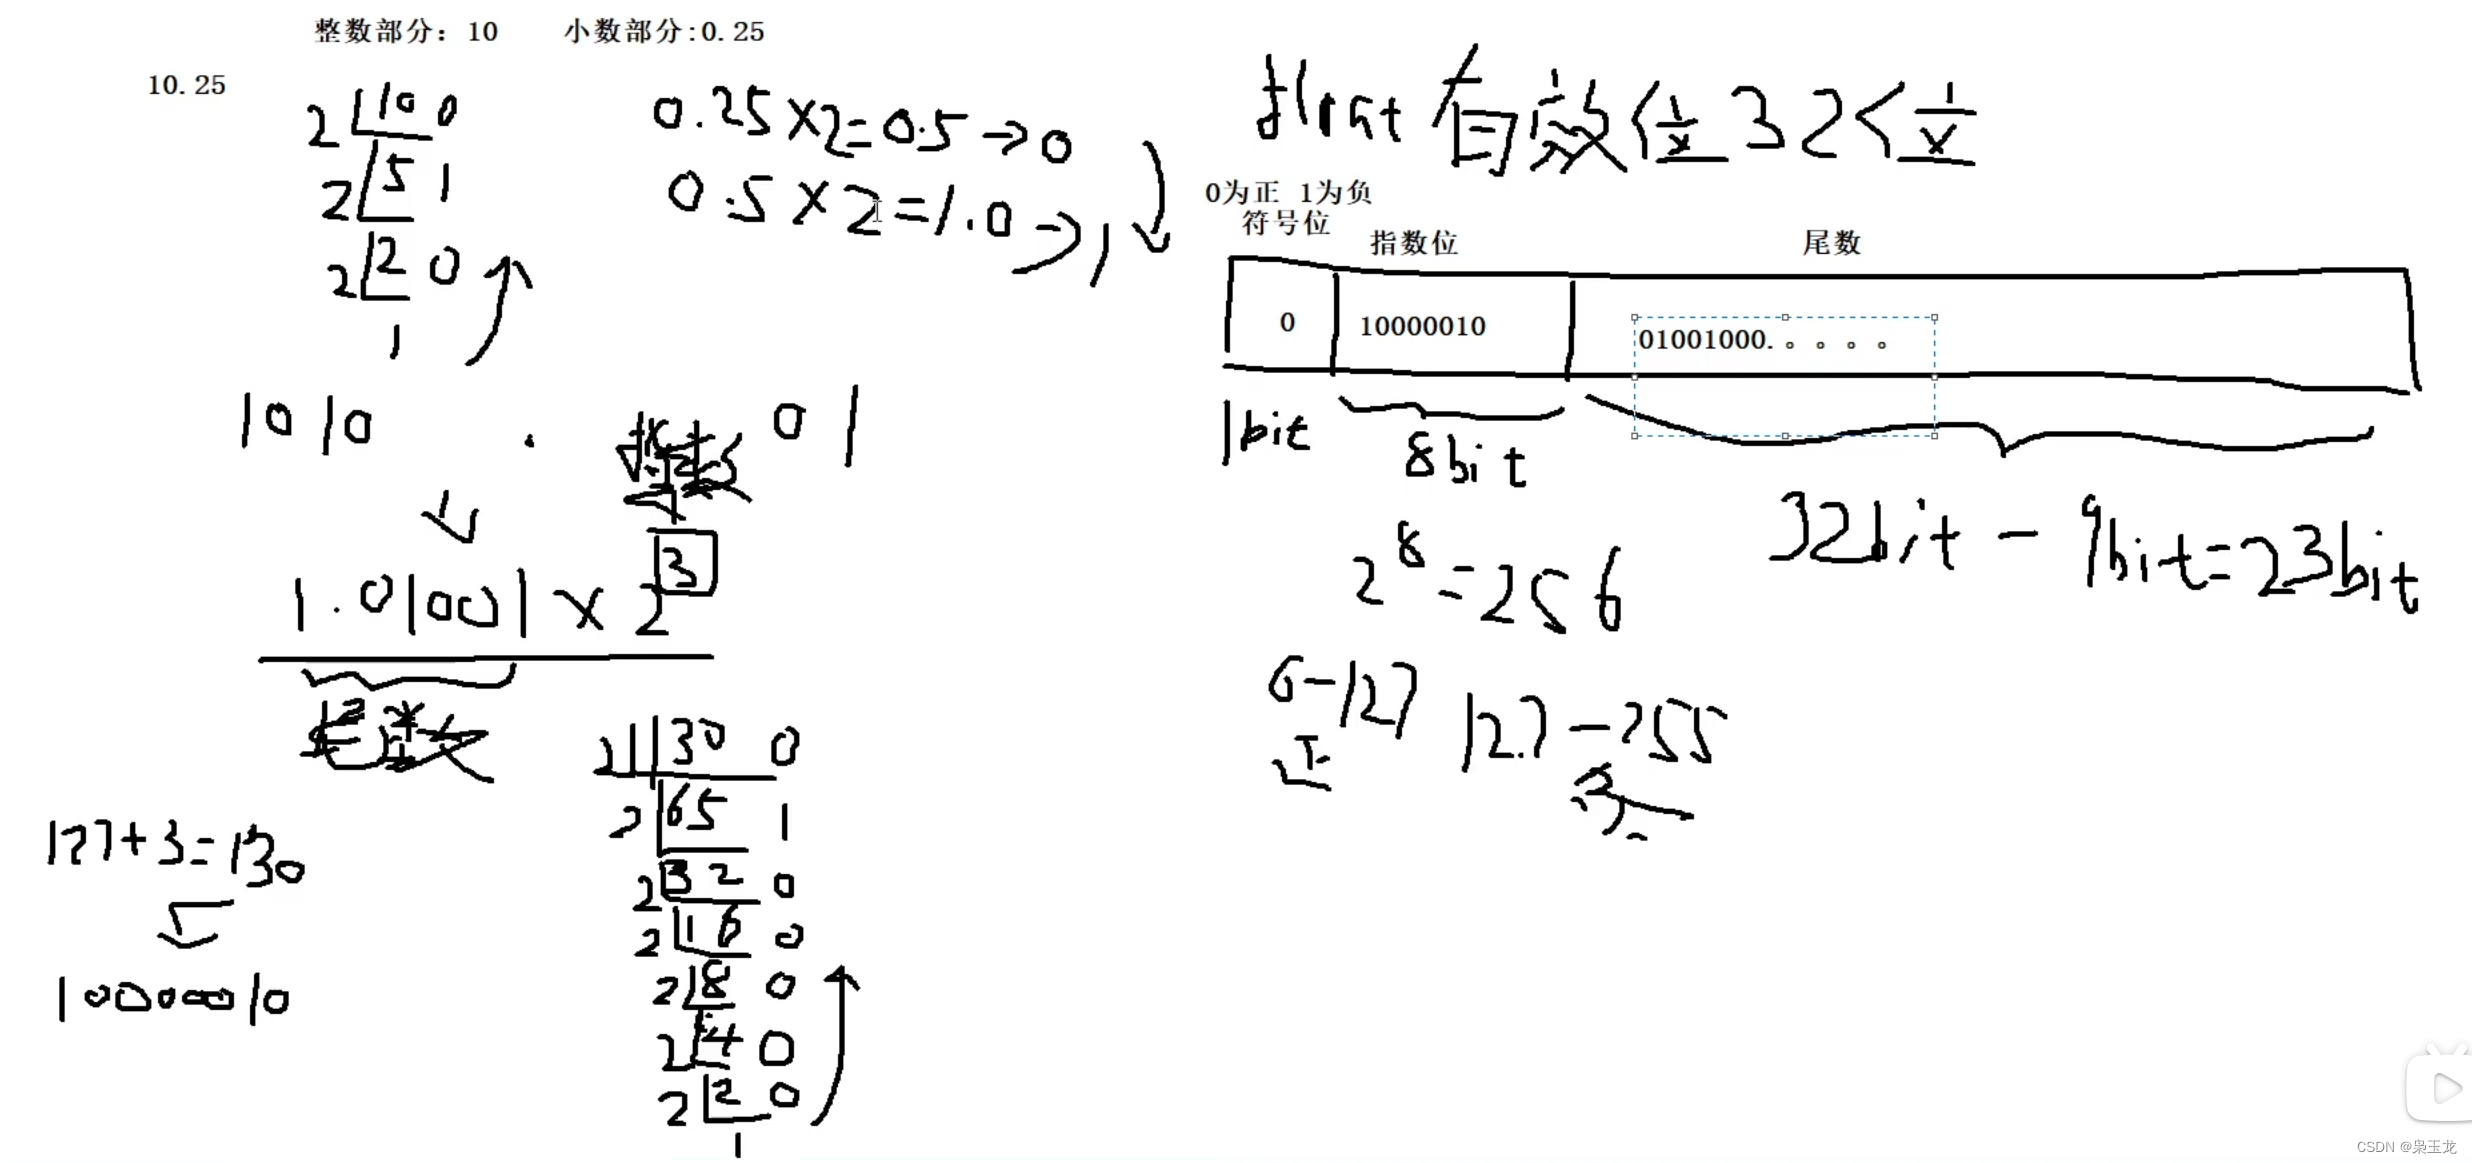 整数部分：10 小数部分:0.25
10.25
2 10 0
2 5 1
2 2 0
1
0.25×2=0.5→0
0.5×2=1.0→1
1010 . 01
指数
3
1.01001×2
尾数
127+3=130
10000010
2 130 0
2 65 1
2 32 0
2 16 0
2 8 0
2 4 0
2 2 0
1
float 有效位32位
0为正 1为负
符号位 指数位 尾数
0 10000010 01001000.。。。。
1bit 8bit
32bit - 9bit=23bit
2^8=256
-127 127-255
正
CSDN @枭玉龙